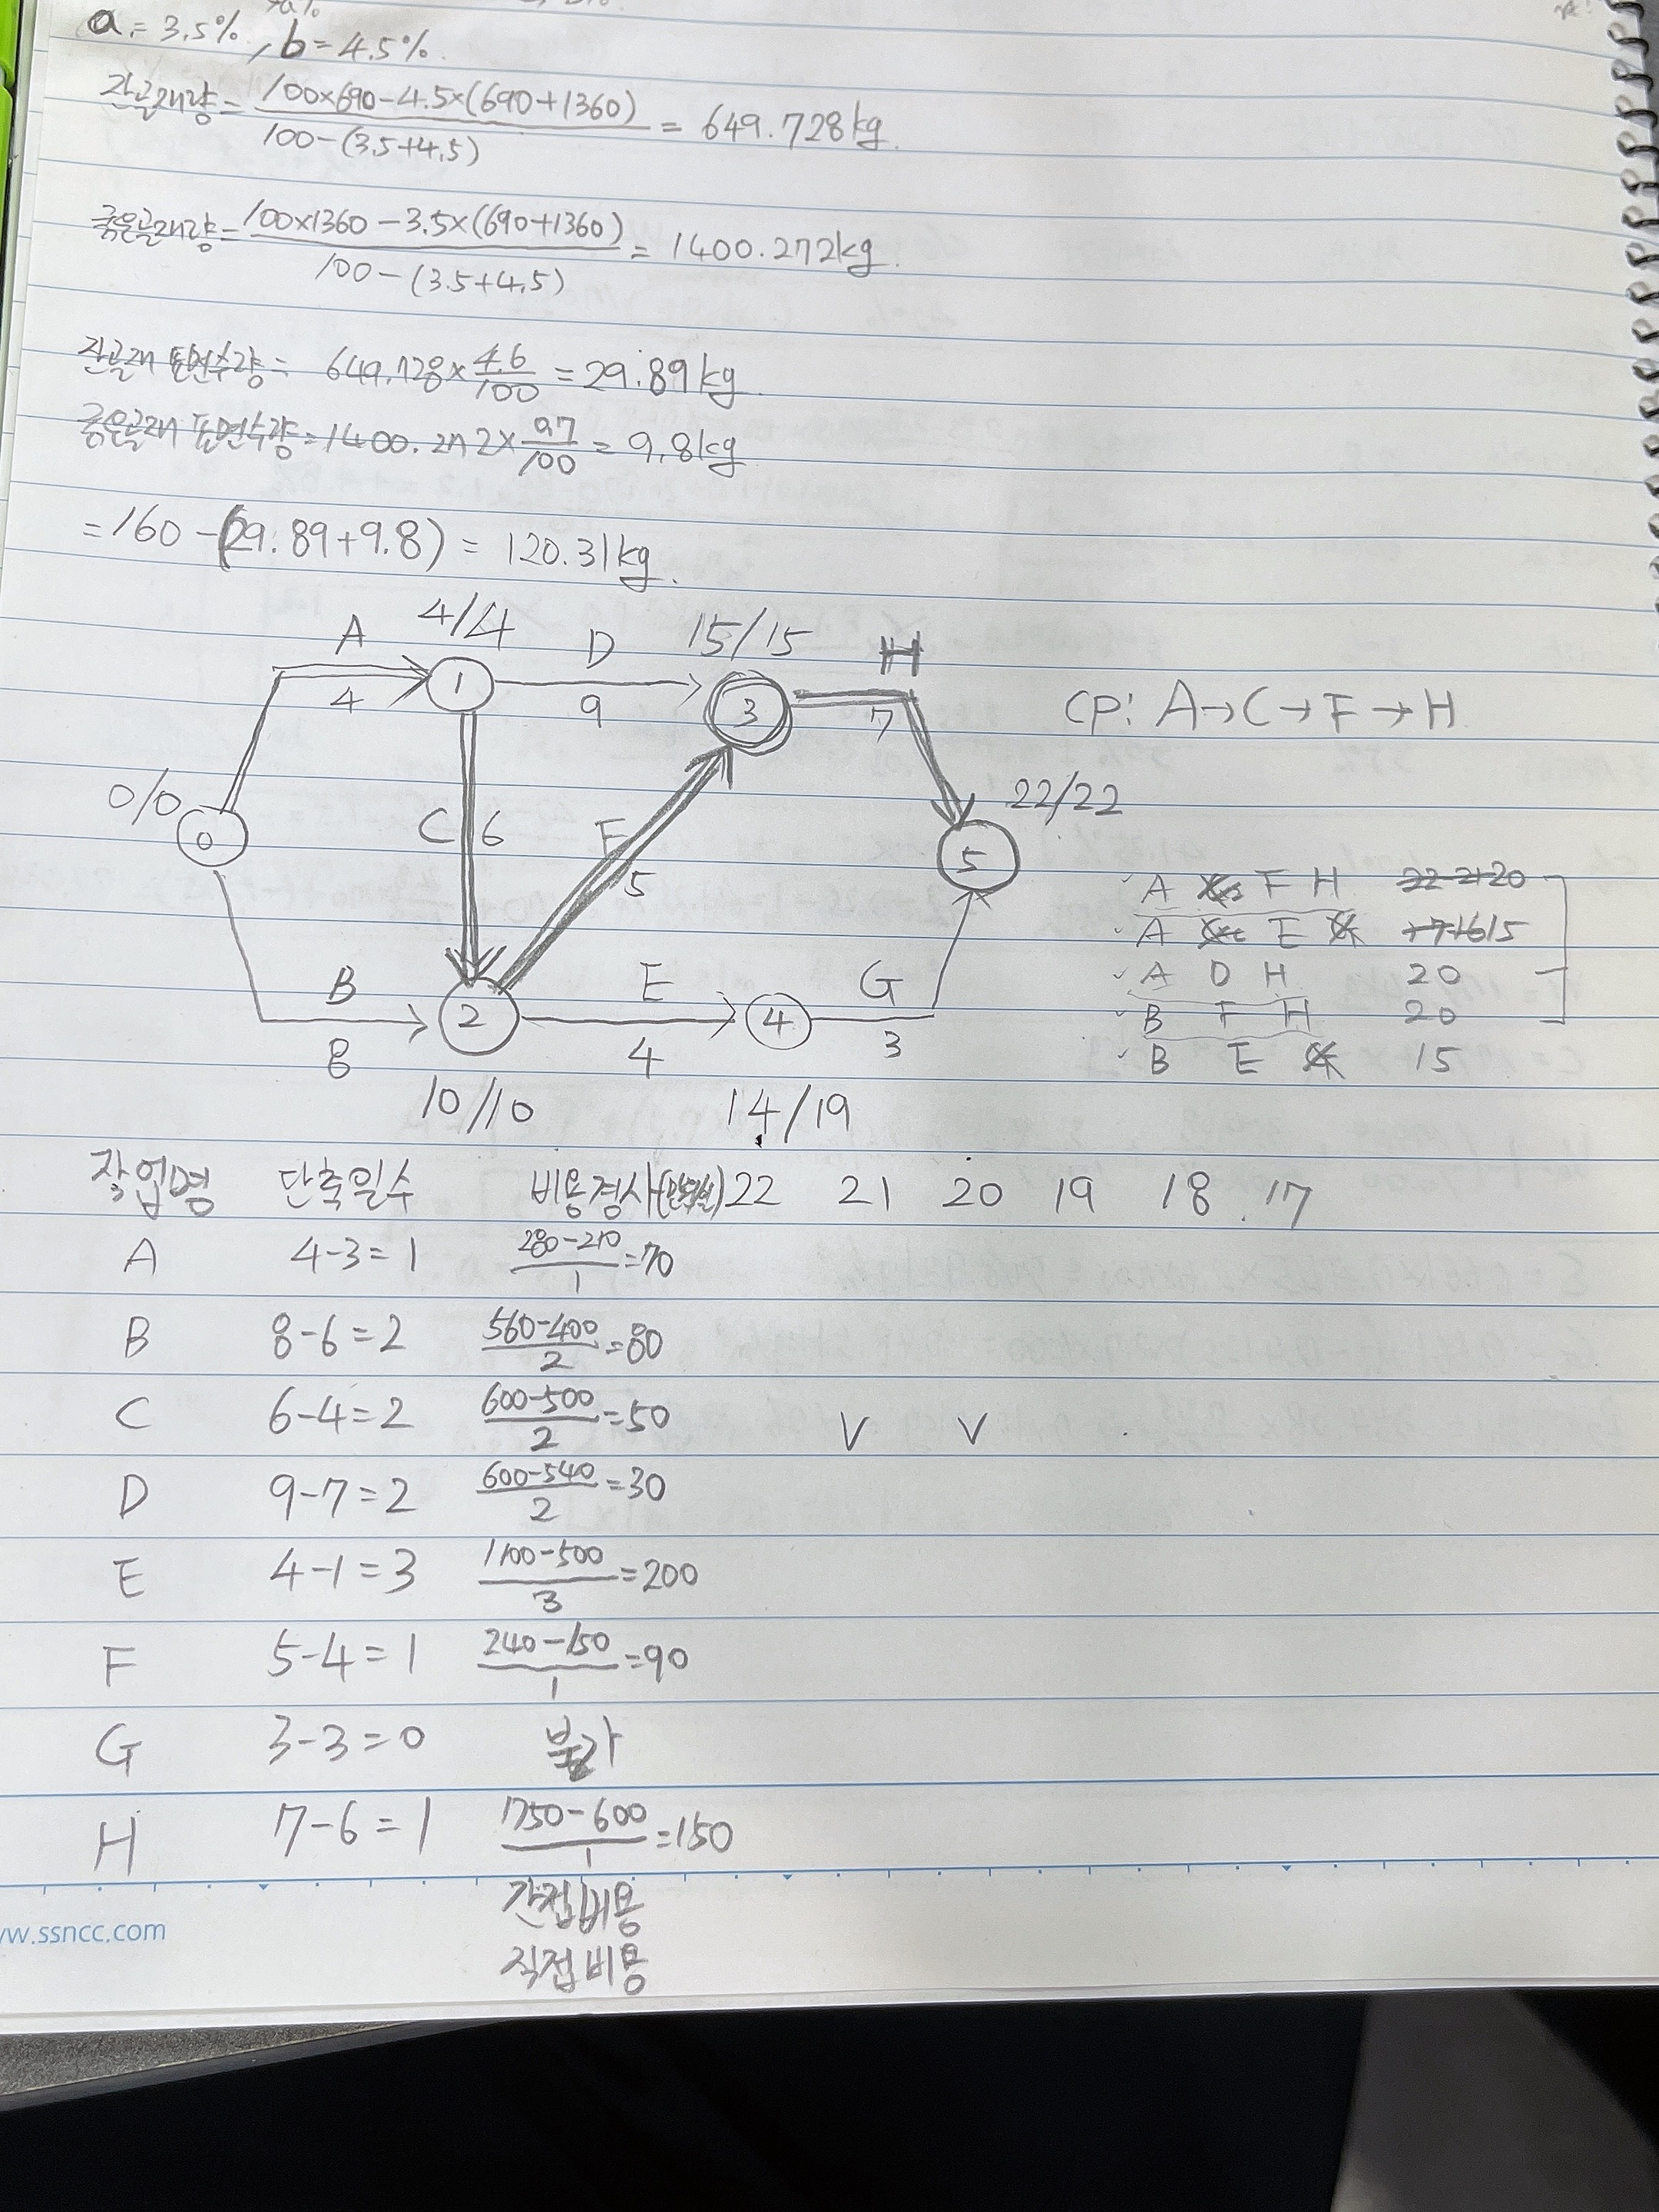 a = 3.5% , b = 4.5%.
잔골재량 = (100×690-4.5×(690+1360))/(100-(3.5+4.5)) = 649.728kg.
굵은골재량 = (100×1360-3.5×(690+1360))/(100-(3.5+4.5)) = 1400.272kg.
잔골재 표면수량 = 649.728×4.6/100 = 29.89kg
굵은골재 표면수량 = 1400.272×0.7/100 = 9.8kg
=160-(29.89+9.8) = 120.31kg.
A 4/4 D 15/15 H
4 1 9 3 7 CP: A→C→F→H
0/0 0 C 6 F 5 22/22 5
A F H 20
A E 15
A D H 20
B F H 20
B E 15
B 2 E 4 G
8 4 3
10/10 14/19
작업명 단축일수 비용경사 22 21 20 19 18 17
A 4-3=1 (280-210)/1=70
B 8-6=2 (560-400)/2=80
C 6-4=2 (600-500)/2=50 V V
D 9-7=2 (600-540)/2=30
E 4-1=3 (1100-500)/3=200
F 5-4=1 (240-150)/1=90
G 3-3=0 불가
H 7-6=1 (1750-600)/1=150
간접비용
직접비용
www.ssncc.com